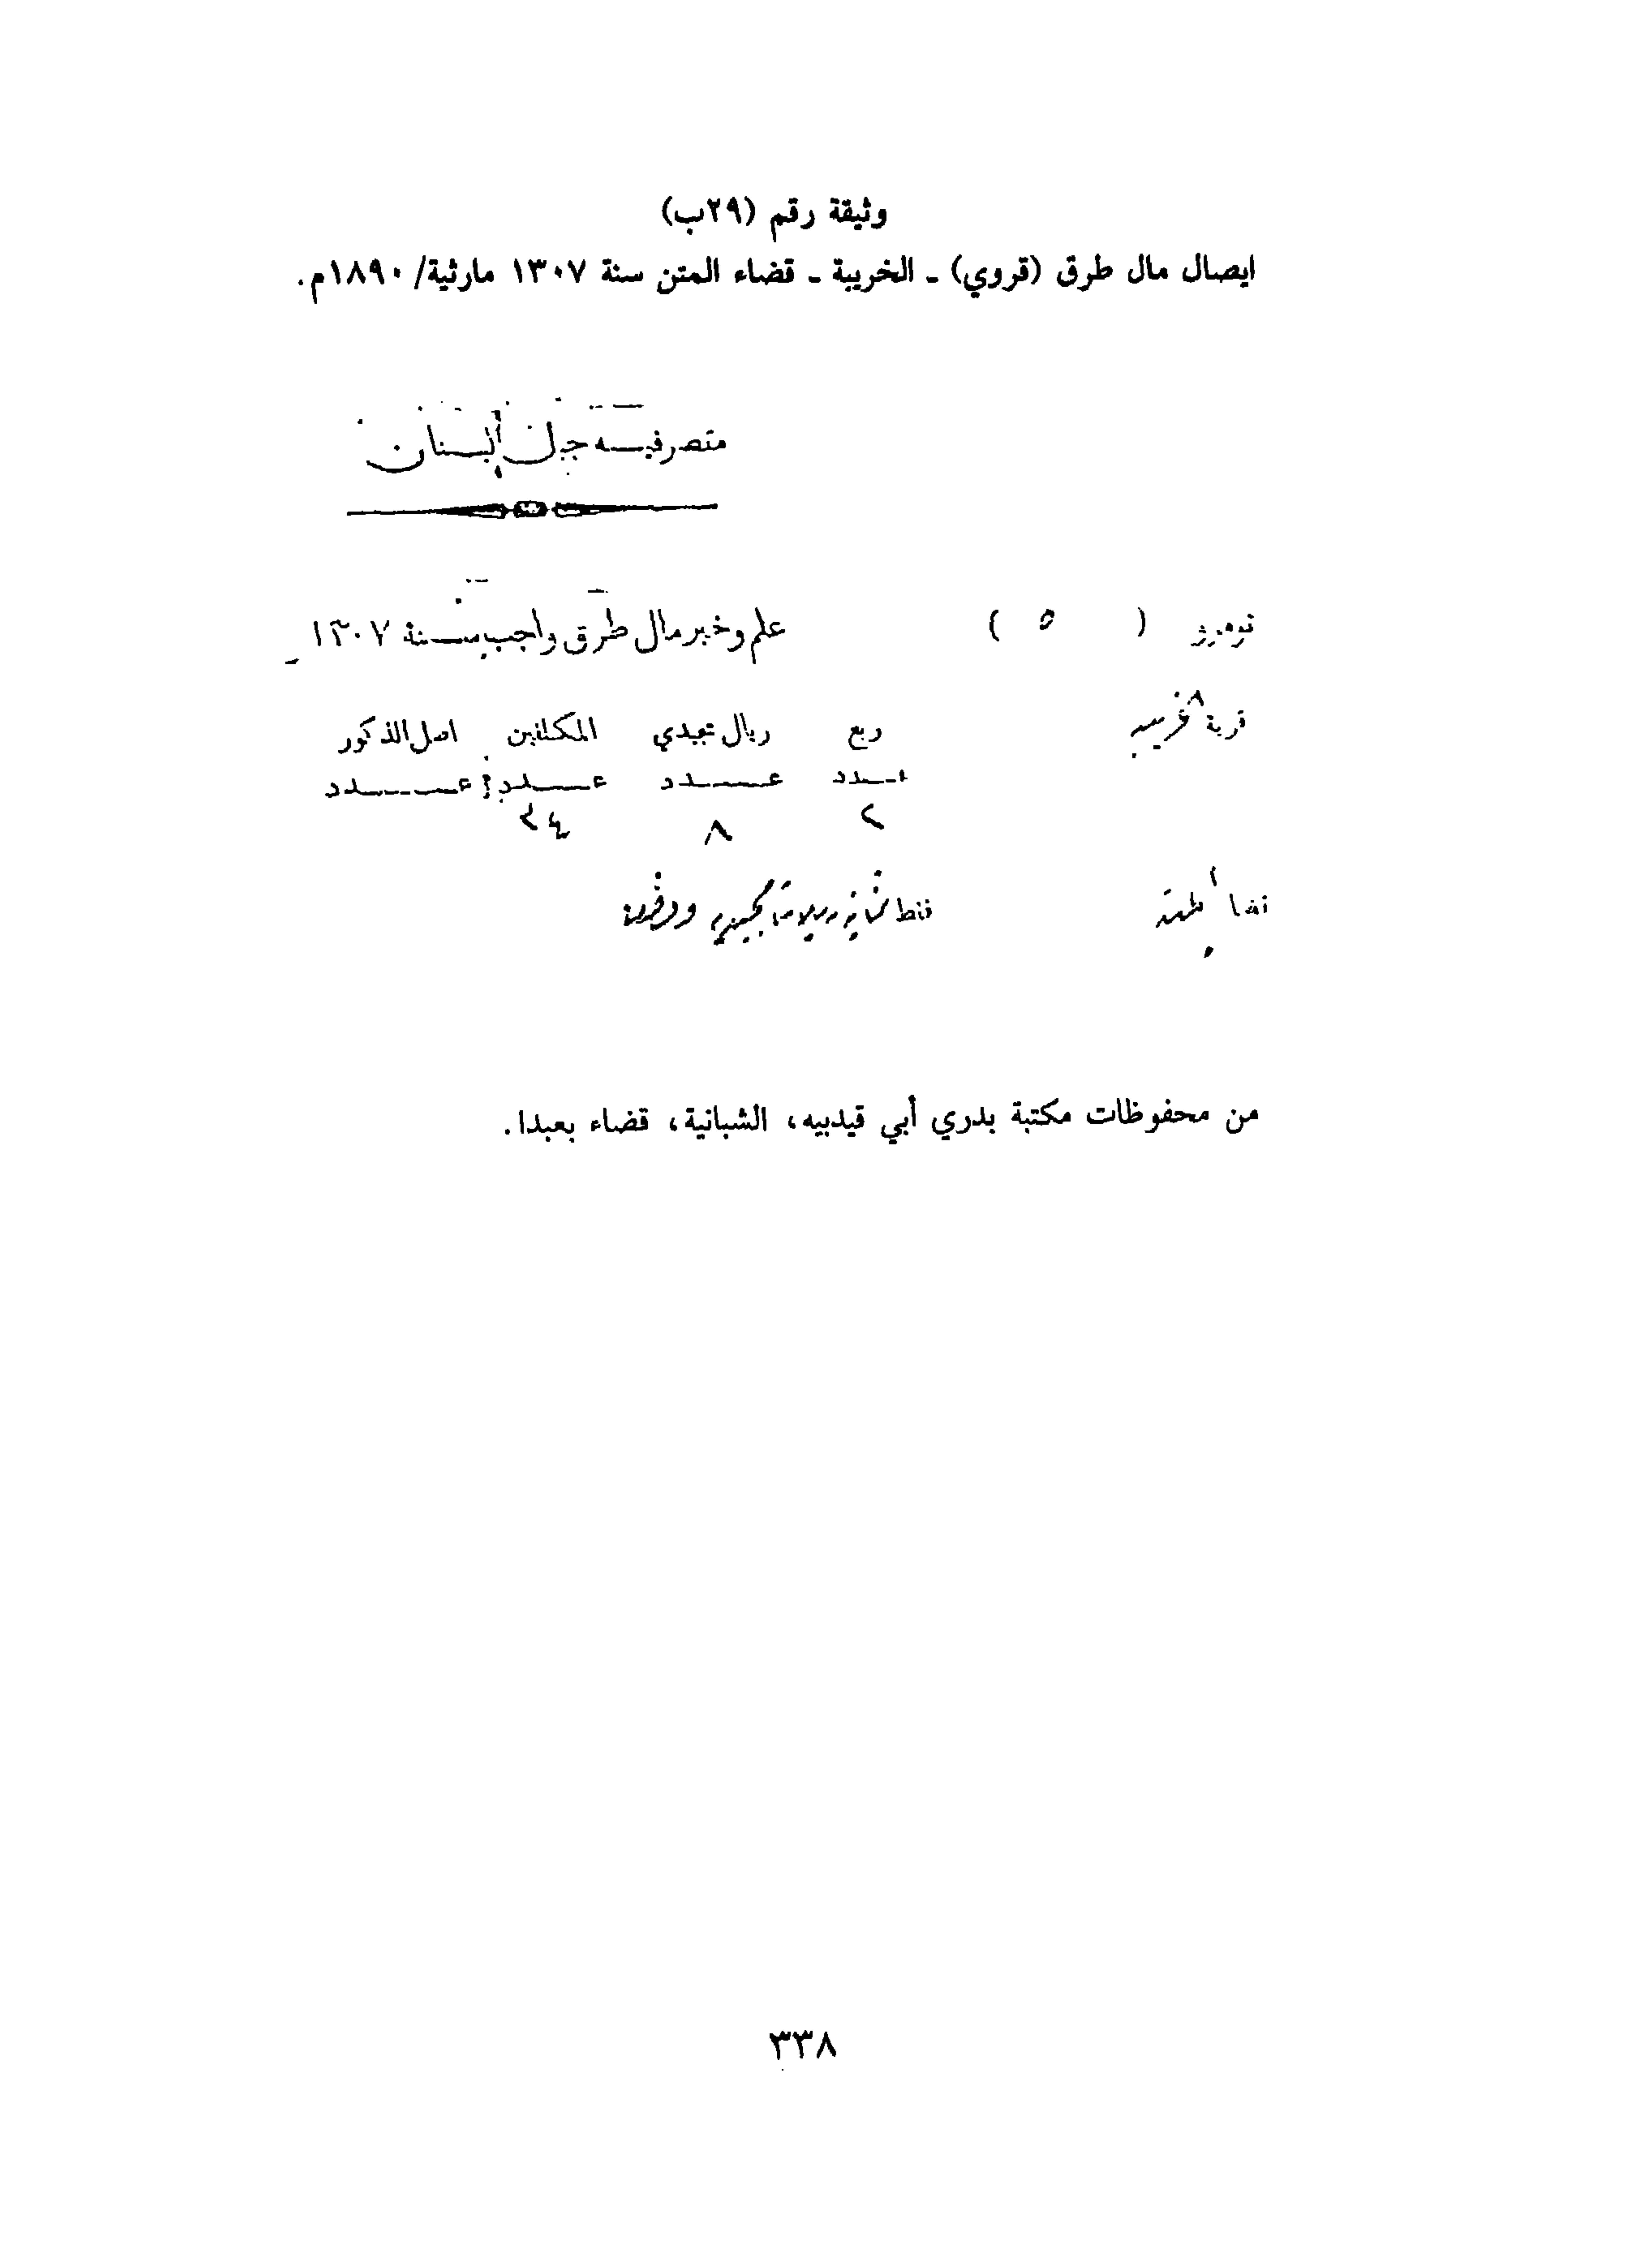 وثيقة رقم (٢٩ب)
ايصال مال طرق (قروي) ـ الخريبة ـ قضاء المتن سنة ١٣٠٧ مارثية/ ١٨٩٠م.
متصرفية جبل لبنان
نومرو ( ٥ ) علم وخبر مال طرق واجب سنة ١٣٠٧
قرية خريبه ربع ريال مجيدي المكلفين اصل الذكور
عدد عدد عدد عدد
٢ ٨ ٣٤
قضا المتن فقط ثمانية ريالات مجيديه
من محفوظات مكتبة بدري أبي قيدبيه، الشبانية، قضاء بعبدا.
٣٣٨